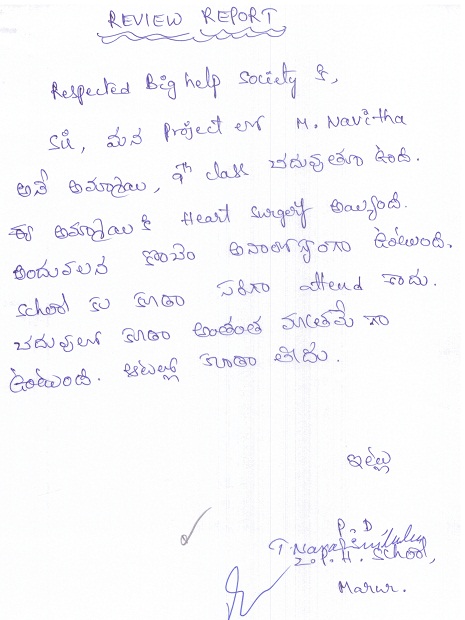 REVIEW REPORT
Respected Big help Society కి,
Sir, మన Project లో M. Navitha
అనే అమ్మాయి, 9th class చదువుతూ ఉంది.
ఈ అమ్మాయి కి Heart surgery అయ్యింది.
అందువలన కొంచెం అనారోగ్యంగా ఉంటుంది.
School కు కూడా సరిగా attend కాదు.
చదువులో కూడా అంతంత మాత్రమే గా
ఉంటుంది. ఆటల్లో కూడా
ఇట్లు
P.D
Z.P.H. School,
Marur.